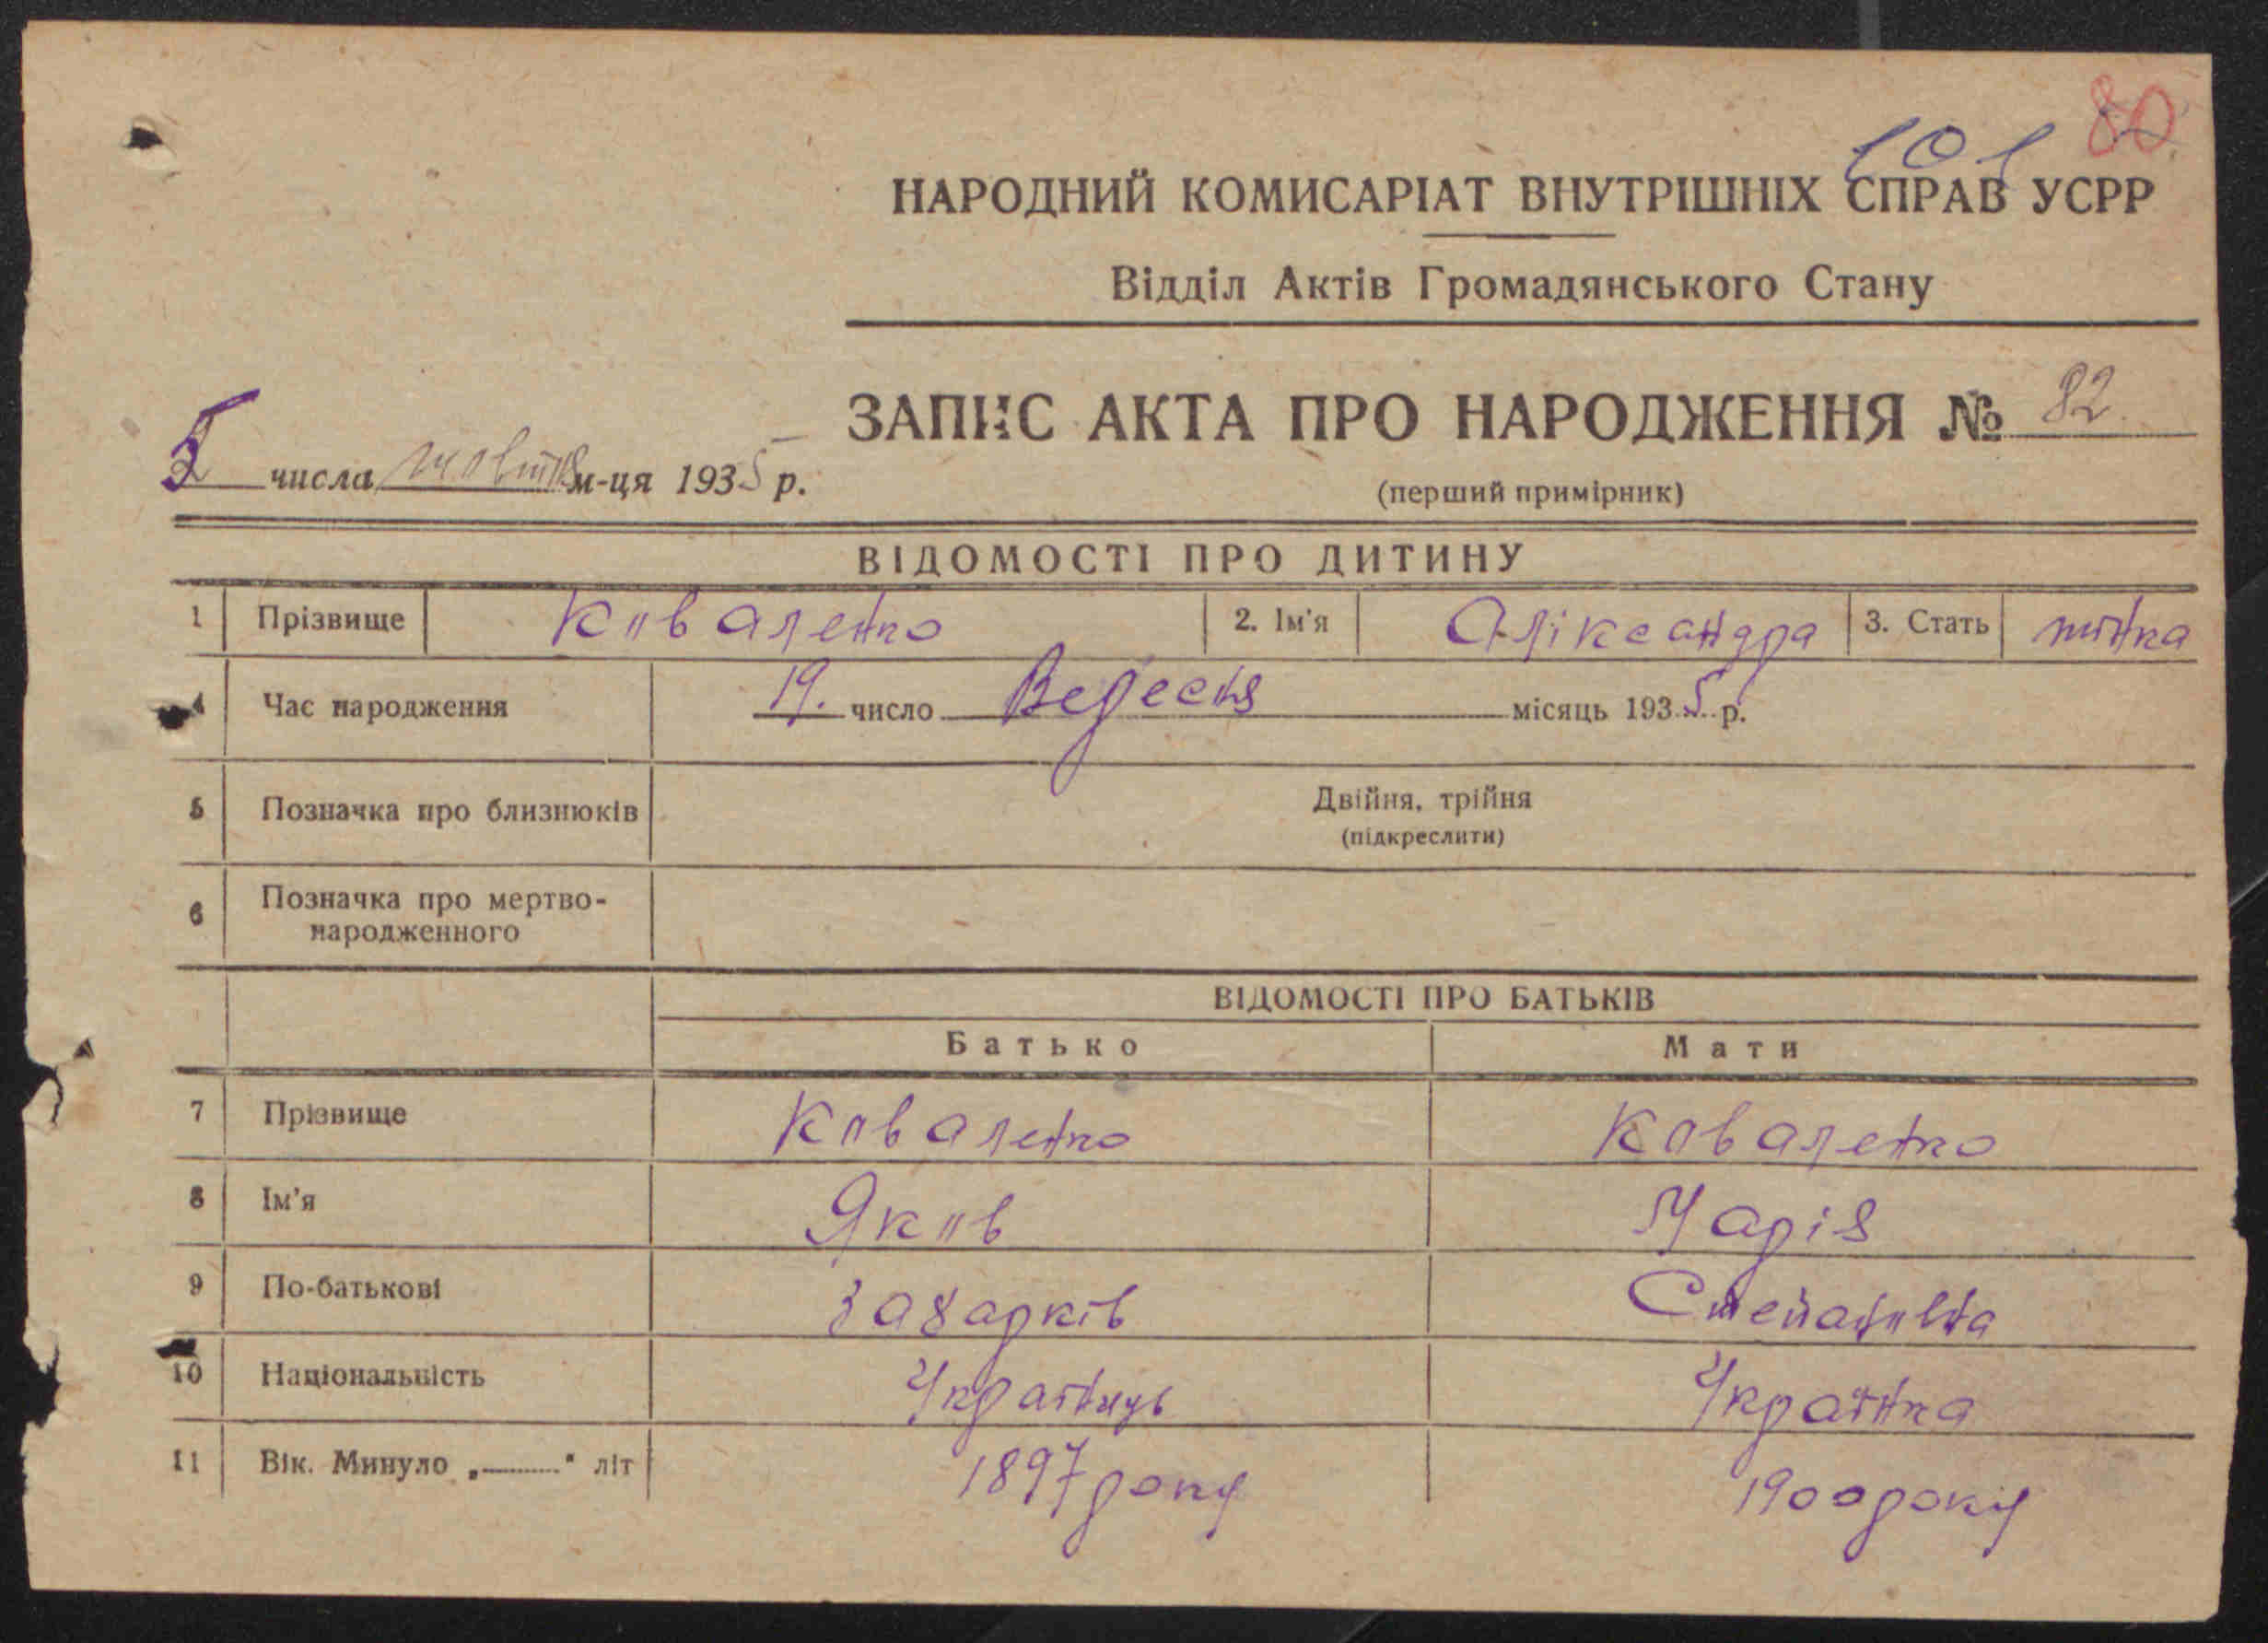 80
101
НАРОДНИЙ КОМИСАРІАТ ВНУТРІШНІХ СПРАВ УСРР
Відділ Актів Громадянського Стану
ЗАПИС АКТА ПРО НАРОДЖЕННЯ № 82
числа жовтня м-ця 1935 р.
(перший примірник)
ВІДОМОСТІ ПРО ДИТИНУ
1 Прізвище Коваленко 2. Ім'я Аліксандра 3. Стать жінка
4 Час народження 19. число Вересня місяць 1935 р.
5 Позначка про близнюків Двійня, трійня
(підкреслити)
6 Позначка про мертво-
народженного
ВІДОМОСТІ ПРО БАТЬКІВ
Батько Мати
7 Прізвище Коваленко Коваленко
8 Ім'я Яков Марія
9 По-батькові Захарків Степановна
10 Національність Українець Українка
11 Вік. Минуло „ " літ 1897 року 1900 року